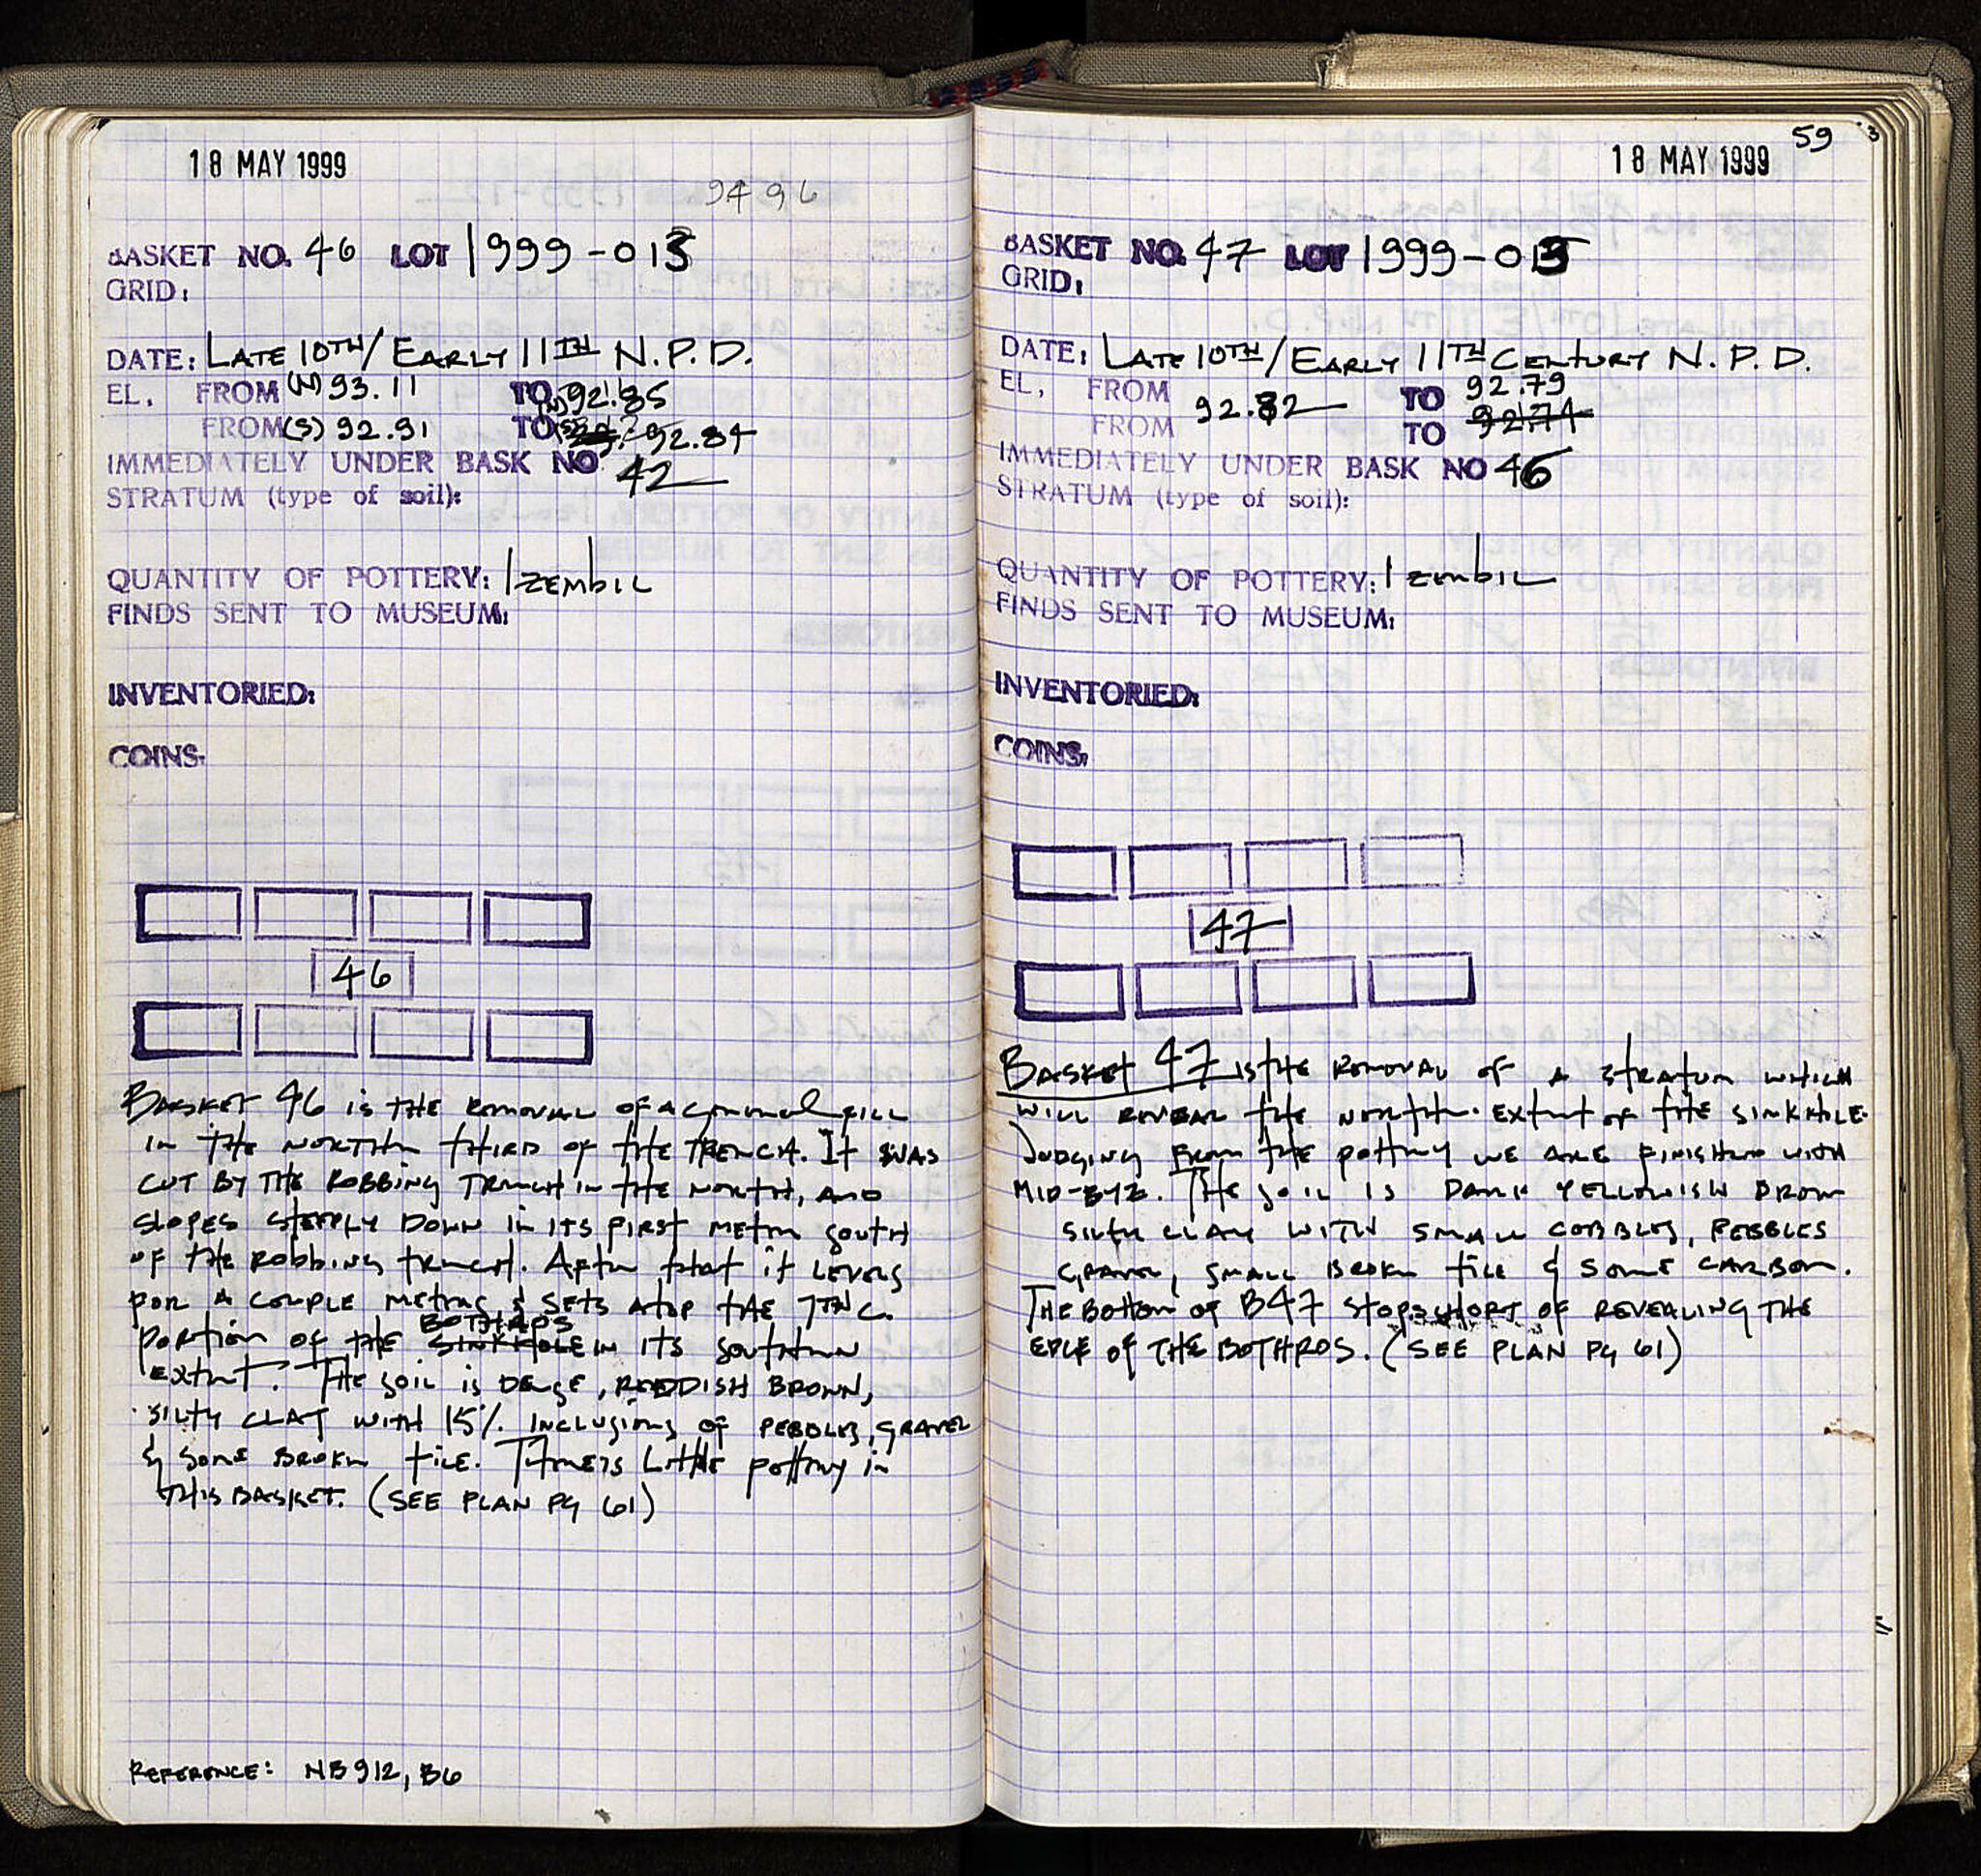 18 MAY 1999
9496
BASKET NO. 46 LOT 1999-013
GRID:
DATE: LATE 10TH/EARLY 11TH N.P.D.
EL. FROM (N) 93.11 TO (N) 92.85
FROM (S) 92.91 TO (S) 92.84
IMMEDIATELY UNDER BASK NO 42
STRATUM (type of soil):
QUANTITY OF POTTERY: 1 ZEMBIL
FINDS SENT TO MUSEUM:
INVENTORIED:
COINS:
46
BASKET 46 IS THE REMOVAL OF A GENERAL FILL
IN THE NORTH THIRD OF THE TRENCH. IT WAS
CUT BY THE ROBBING TRENCH IN THE NORTH, AND
SLOPES STEEPLY DOWN IN ITS FIRST METER SOUTH
OF THE ROBBING TRENCH. AFTER THAT IT LEVELS
FOR A COUPLE METERS & SETS ATOP THE 7TH C.
BOTHROS
PORTION OF THE SINKHOLE IN ITS SOUTHERN
EXTENT. THE SOIL IS DENSE, REDDISH BROWN,
SILTY CLAY WITH 15% INCLUSIONS OF PEBBLES, GRAVEL
& SOME BROKEN TILE. THERE IS LITTLE POTTERY IN
THIS BASKET. (SEE PLAN PG 61)
REFERENCE: NB912, B6
59
18 MAY 1999
BASKET NO. 47 LOT 1999-015
GRID:
DATE: LATE 10TH/EARLY 11TH CENTURY N.P.D.
EL. FROM 92.82 TO 92.79
FROM TO 92.74
IMMEDIATELY UNDER BASK NO 46
STRATUM (type of soil):
QUANTITY OF POTTERY: 1 ZEMBIL
FINDS SENT TO MUSEUM:
INVENTORIED:
COINS:
47
BASKET 47 IS THE REMOVAL OF A STRATUM WHICH
WILL REVEAL THE NORTH. EXTENT OF THE SINKHOLE.
JUDGING FROM THE POTTERY WE ARE FINISHED WITH
MID-BYZ. THE SOIL IS DARK YELLOWISH BROWN
SILTY CLAY WITH SMALL COBBLES, PEBBLES
GRAVEL, SMALL BROKEN TILE & SOME CARBON.
THE BOTTOM OF B47 STOPS SHORT OF REVEALING THE
EDGE OF THE BOTHROS. (SEE PLAN PG 61)